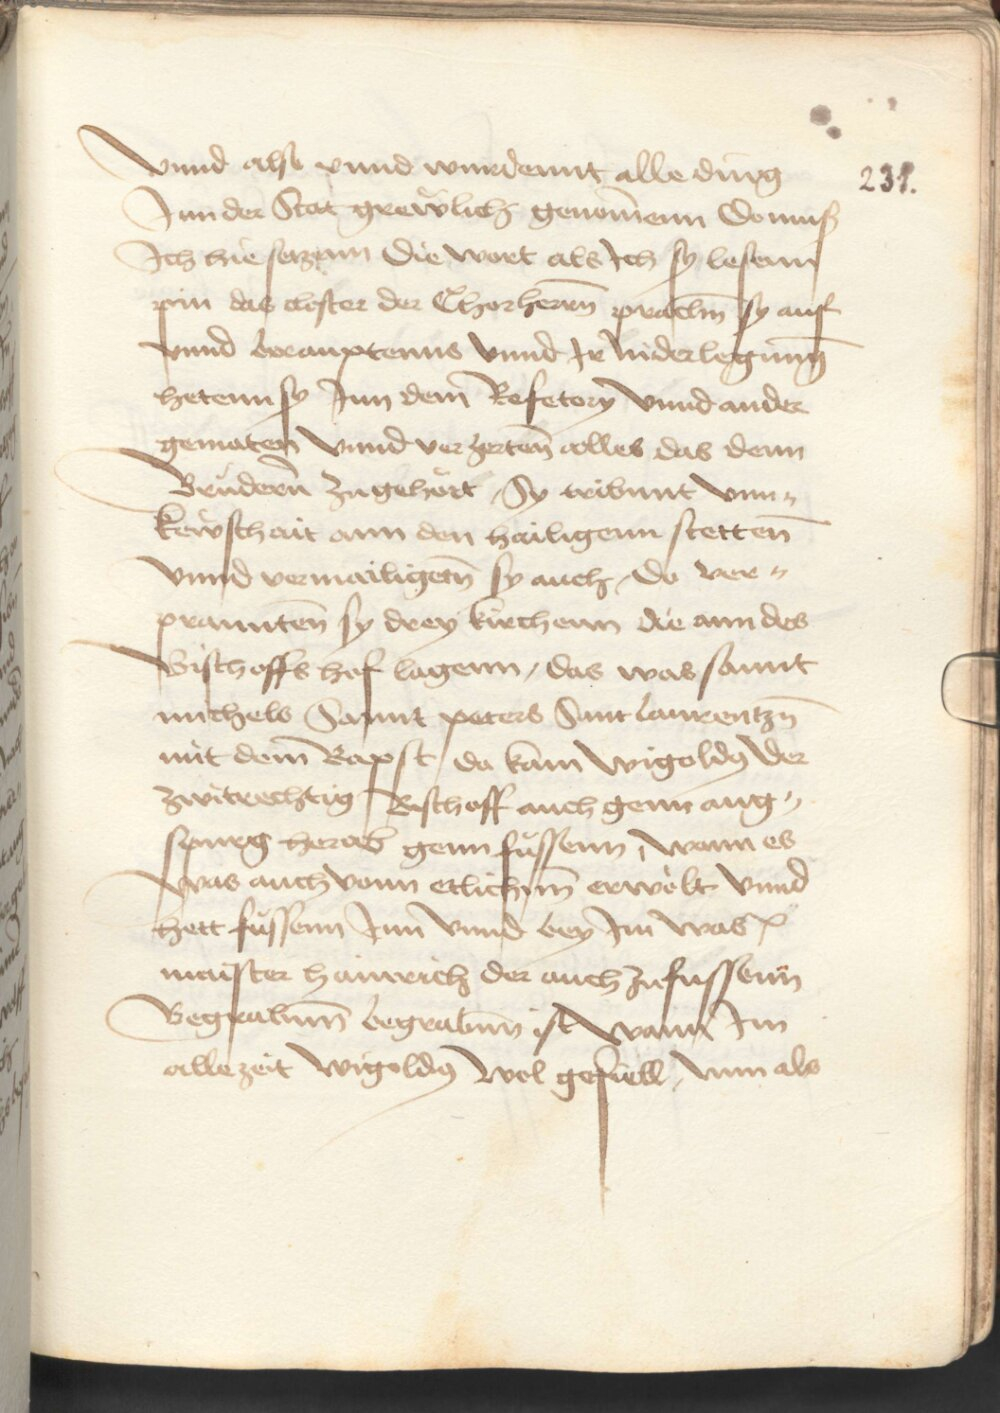 231.
vnnd also vnnd wurdennt alle ding
Jnn der Stat grewlich genom̄enn Do muß
Jch hie seczenn die wort als Jch sy lesenn
pin das closter der Chorherrn̄ prachn̄ sy auf
vnnd beraupten uns vnnd Jr niderlegung
hetenn sy Jnn dem̄ Refetory vnnd ander
gematen vnnd verzerten̄ alles das denn
Brüdern̄ zugehört, Sy tribunt vnn„
kewschait ann den hailigenn stetten̄
vnnd vermailigetn̄ sy auch, do ver„
prannten̄ sy drey kirchenn die ann des
Bischoffs hof lagenn, das was sannt
michels Sannt peters Sant laurentzn̄
mit dem̄ Bapst da kam Wigoldꝯ der
zwitrechtig Bischoff auch genn aug„
spurg herab genn füssenn, wann es
was auch vonn etlichn̄ erwölt vnnd
hett füssenn Jnn vnnd bey Jm was
maister hainrich der auch zu fussenn
Begrabnn̄ begrabn̄ ist Wann Jm
alle zeit Wigoldꝯ wol gefiell, vnn als